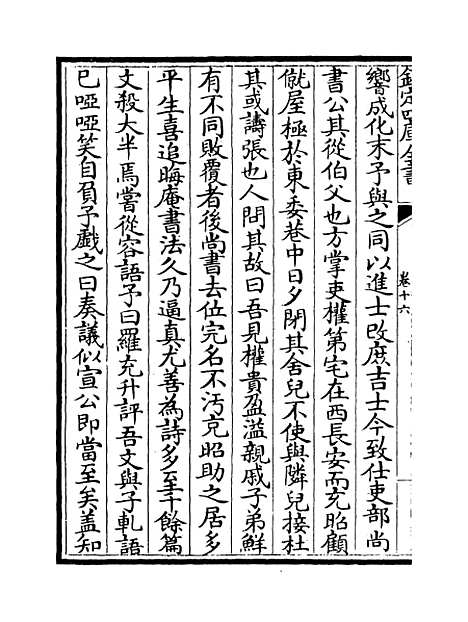 欽定四庫全書
卷十六
響成化末予與之同以進士改庶吉士今致仕吏部尚
書公其從伯父也方掌吏權第宅在西長安而充昭顧
僦屋極於東委巷中日夕閉其舍兒不使與隣兒接杜
其或譸張也人問其故曰吾見權貴盈溢親戚子弟鮮
有不同敗覆者後尚書去位完名不汚克昭助之居多
平生喜追晦庵書法久乃逼真尤善為詩多至千餘篇
文殺大半焉嘗從容語予曰羅充升評吾文與子軋語
已啞啞笑自負予戲之曰奏議似宣公即當至矣蓋知